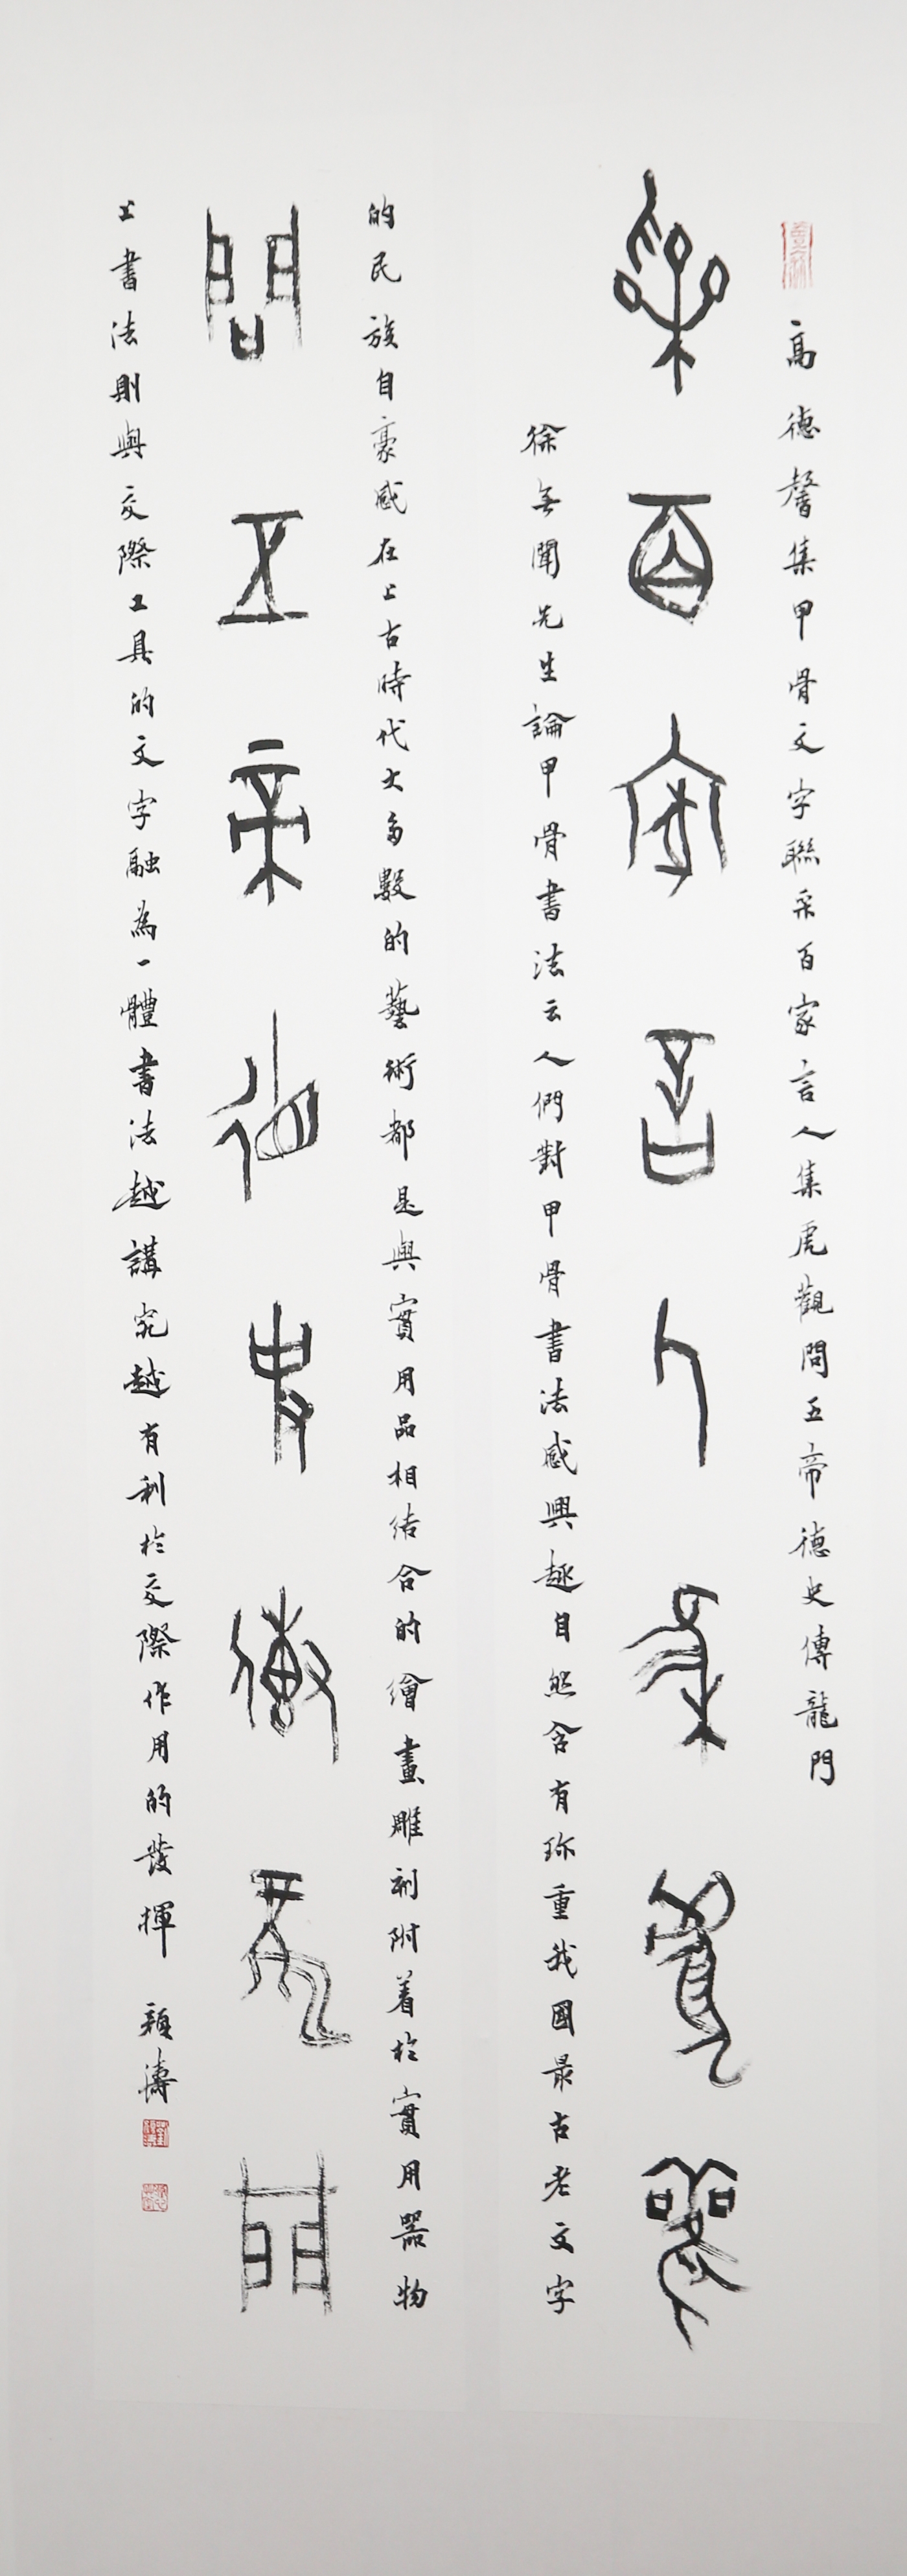 高德馨集甲骨文字聯采百家言人集虎觀問五帝德史傳龍門
采百家言人集虎觀
徐無聞先生論甲骨書法云人們對甲骨書法感興趣自然含有珎重我國最古老文字
的民族自豪感在上古時代大多數的藝術都是與實用品相结合的繪畫雕刻附着於實用器物
問五帝德史傳龍門
上書法則與交際工具的文字融為一體書法越講究越有利於交際作用的發揮 穎濤